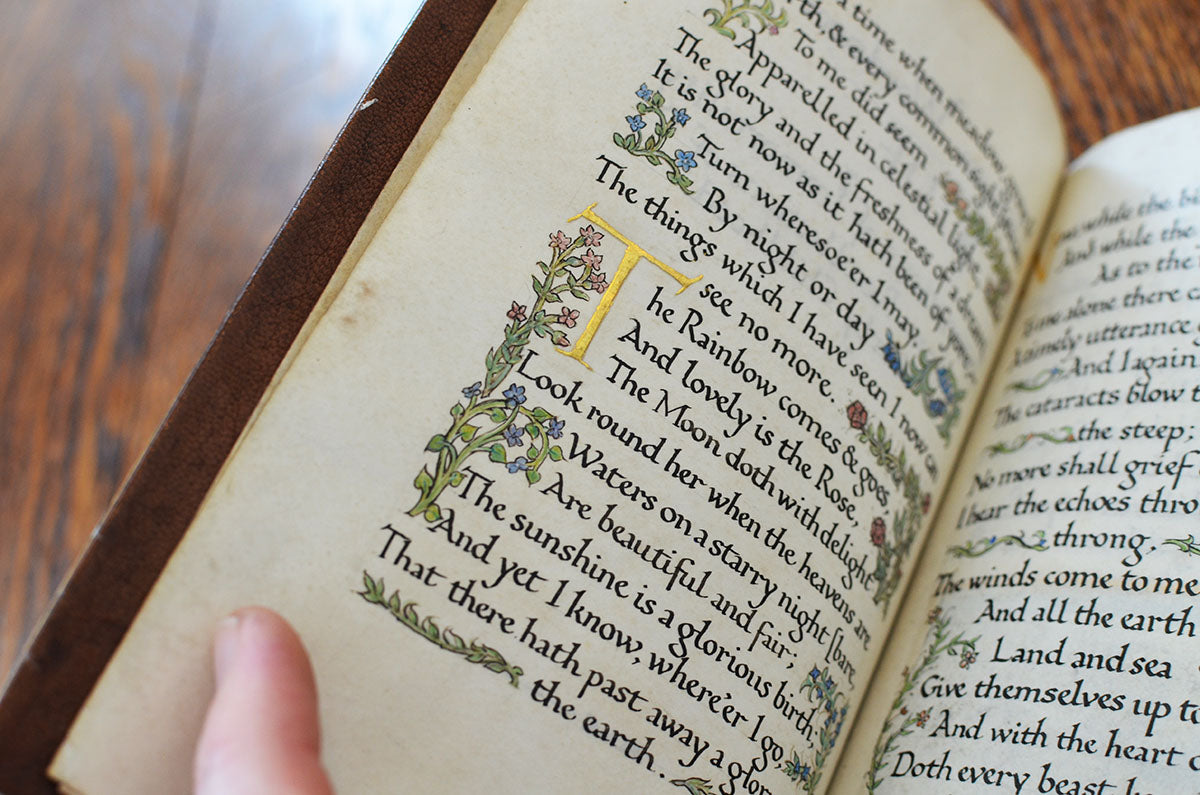 a time when meadow
rth, & every common sight
To me did seem
Apparelled in celestial light,
The glory and the freshness of a dre
It is not now as it hath been of yore;
Turn wheresoe'er I may,
By night or day
The things which I have seen I now can
see no more.
The Rainbow comes & goes,
And lovely is the Rose,
The Moon doth with delight
Look round her when the heavens are
Waters on a starry night [bare,
Are beautiful and fair;
The sunshine is a glorious birth;
And yet I know, where'er I go,
That there hath past away a glor
the earth.
while the bi
And while the
As to the
me alone there c
A timely utterance
And I again
The cataracts blow t
the steep;
No more shall grief
I hear the echoes thro
throng,
The winds come to me
And all the earth
Land and sea
Give themselves up to
And with the heart o
Doth every beast